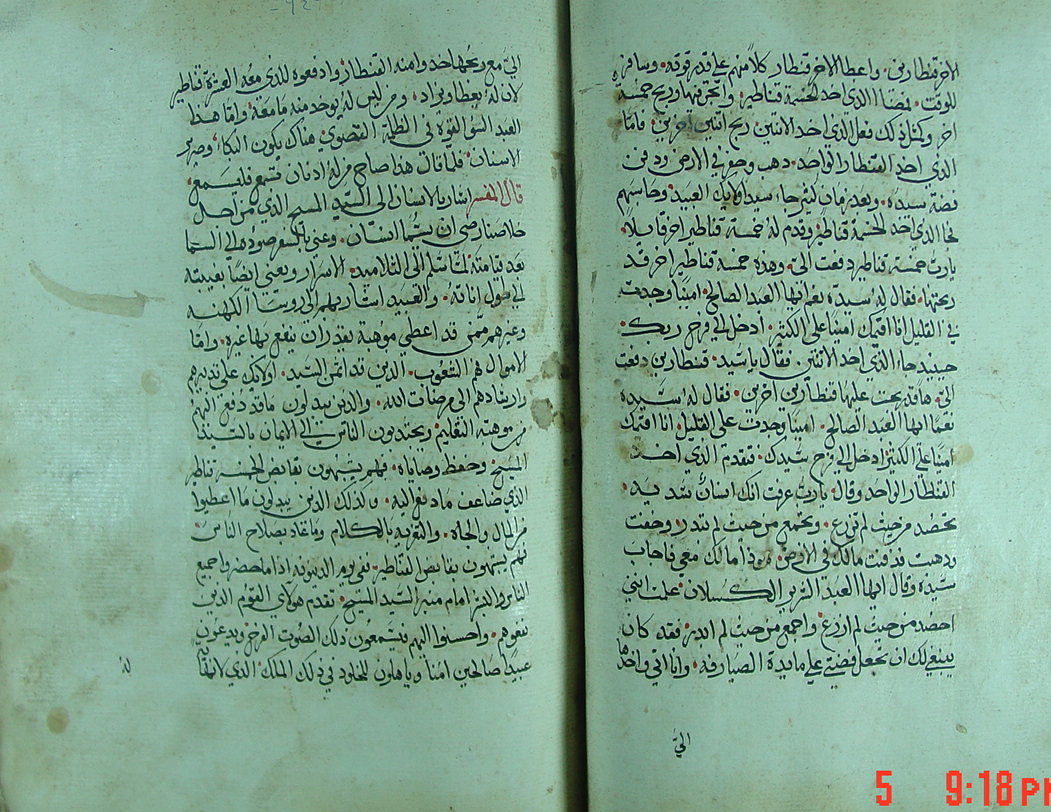 الاخر قنطارين. واعطا الاخر قنطار كلاً منهم على قدر قوته. وسافر
للوقت. فمضا الذي اخذ الخمسة قناطير. واتجر فيها وربح خمسة
اخر وكذلك فعل الذي اخذ الاثنين ربح اثنين اخرين. فاما
الذي اخذ القنطار الواحد. ذهب وحفر في الارض ودفن
فضة سيده. وبعد زمان كثير جاء سيد اولايك العبيد وحاسبهم
فجا الذي اخذ الخمسة قناطير وقدم له خمسة قناطير اخر قايلاً.
يارب خمسة قناطير دفعت اليّ وهذه خمسة قناطير اخر قد
ربحتها. فقال له سيده نعم ايها العبد الصالح. امينا وجدت
في القليل انا اقيمك امينا على الكثير. ادخل الى فرح ربك.
حينيذ جاء الذي اخذ الاثنين. فقال يا سيد. قنطارين دفعت
اليّ. هاقد ربحت عليها قنطارين اخرين. فقال له سيده
نعما ايها العبد الصالح. امينا وجدت على القليل. انا اقيمك
امينا على الكثير ادخل الى فرح سيدك. فتقدم الذي اخذ
القنطار الواحد وقال. يارب عرفت انك انسان شديد.
تحصد من حيث لم تزرع. وتجمع من حيث لم تبذر. وخفت
وذهبت فدفنت مالك في الارض. هوذا مالك معي فاجاب
سيده وقال ايها العبد الشرير الكسلان. علمت انني
احصد من حيث لم ازرع واجمع من حيث لم ابذر. فقد كان
ينبغي لك ان تجعل فضتي على مايدة الصيارفة. وانا اتي واخذها
اليّ
اليّ مع ربحها خذوا منه القنطار وادفعوه للذي معه العشرة قناطير
لان له يعطا ويزاد. ومن ليس له يوخذ منه ما معه. واما هذا
العبد السو القوه في الظلمة القصوى. هناك يكون البكا. وصرير
الاسنان. فلما قال هذا صاح من له اذنان تسمع فليسمع.
قال المفسر اشار بالانسان الى السيد المسيح الذي من اجل
خلاصنا رضي ان يسما انسان. وعنى بالسفر صعوده الى السما
بعد قيامته لما سلم الى التلاميذ. الاسرار ويعني ايضا بغيبته
في طول اناته. والعبيد اشار بهم الى روسا الكهنه
وغيرهم ممن قد اعطى موهبة يقدر ان ينفع بها غيره. واما
الاموال فهم الشعوب. الذين قد اتمن السيد. اولايك على تدبيرهم
وارشادهم الى مرضات الله. والذين يبدلون ما قد دفع اليهم
من موهبة التعليم ويجتذبون الناس الى الايمان بالسيد
المسيح وحفظ وصاياه. فهم يشبهون بقابض الخمسة قناطير
الذي ضاعف ما دفع اليه. وكذلك الذين يبدلون ما اعطيوا
من المال والجاه. والتعزيه بالكلام وما عاد بصلاح الناس.
فهم يشبهون بقابض القناطير. ففي يوم الدينونه اذا ما حضروا جميع
الناس امام منبر السيد المسيح. تقدم هولاي القوم الذين
نفعوهم. واحسنوا اليهم فيسمعون ذلك الصوت الفرح ويدعون
عبيدا صالحين امنا ويأهلون للخلود في ذلك الملك الذي لا انقضا
له
5 9:18 PM